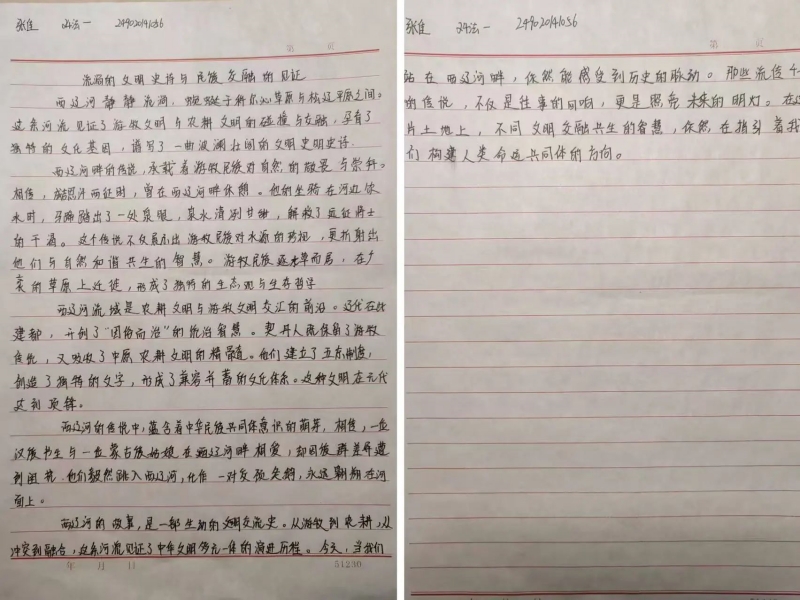 张佳 政法一 249020141056
第 页
流淌的文明史诗与民族交融的见证
西辽河静静流淌,蜿蜒于科尔沁草原与松辽平原之间。
这条河流见证了游牧文明与农耕文明的碰撞与交融,孕育了
独特的文化基因,谱写了一曲波澜壮阔的文明史明史诗.
西辽河畔的传说,承载着游牧民族对自然的敬畏与崇拜。
相传,成吉思汗西征时,曾在西辽河畔休憩。他的坐骑在河边饮
水时,马蹄踏出了一处泉眼,泉水清冽甘甜,解救了远征将士
的干渴。这个传说不仅展示出游牧民族对水源的珍视,更折射出
他们与自然和谐共生的智慧。游牧民族逐水草而居,在广
袤的草原上迁徙,形成了独特的生态观与生存哲学
西辽河流域是农耕文明与游牧文明交汇的前沿。辽代在此
建都,开创了"因俗而治"的统治智慧。契丹人既保留了游牧
传统,又吸收了中原农耕文明的精髓。他们建立了五京制度,
创造了独特的文字,形成了兼容并蓄的文化体系。这种文明在元代
达到顶锋。
西辽河的传说中,蕴含着中华民族共同体意识的萌芽,相传,一位
汉族书生与一位蒙古族姑娘在西辽河畔相爱,却因族群差异遭
到阻挠.他们毅然跳入西辽河,化作一对交颈鸳鸯,永远翱翔在河
面上。
西辽河的故事,是一部生动的文明交流史。从游牧到农耕,从
冲突到融合,这条河流见证了中华文明多元一体的演进历程。今天,当我们
年 月 日 51230
张佳 政法一 249020141056
第 页
站在西辽河畔,依然能感受到历史的脉动。那些流传千
的传说,不仅是往事的回响,更是照亮未来的明灯。在这
片土地上,不同文明交融共生的智慧,依然在指引着我
们构建人类命运共同体的方向。